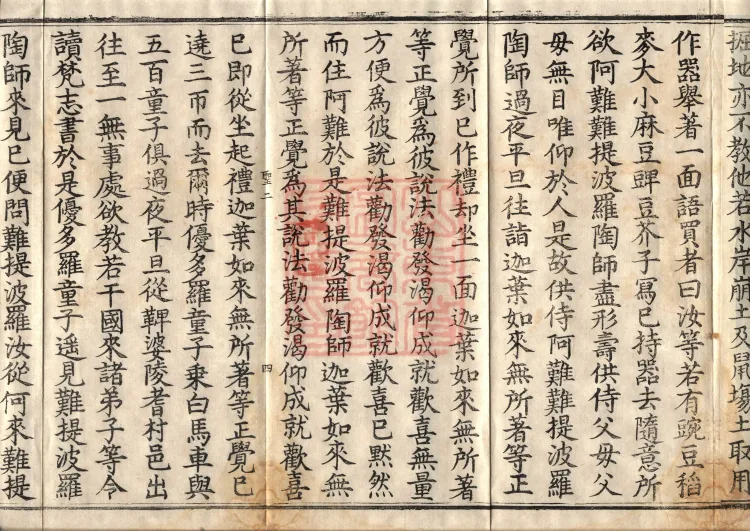 掘地亦不教他若水岸崩土及鼠塲土取用
作器舉著一面語買者曰汝等若有豌豆稻
麥大小麻豆豍豆芥子寫已持器去隨意所
欲阿難難提波羅陶師盡形壽供侍父毋父
毋無目唯仰於人是故供侍阿難難提波羅
陶師過夜平旦往詣迦葉如來無所著等正
覺所到已作禮却坐一面迦葉如來無所著
等正覺為彼說法勸發渴仰成就歡喜無量
方便為彼說法勸發渴仰成就歡喜已默然
而住阿難於是難提波羅陶師迦葉如來無
所著等正覺為其說法勸發渴仰成就歡喜
聖二 四
已即從坐起禮迦葉如來無所著等正覺已
遶三帀而去爾時優多羅童子乗白馬車與
五百童子俱過夜平旦從鞞婆陵耆村邑出
往至一無事處欲教若干國來諸弟子等令
讀梵志書於是優多羅童子遥見難提波羅
陶師來見已便問難提波羅汝從何來難提